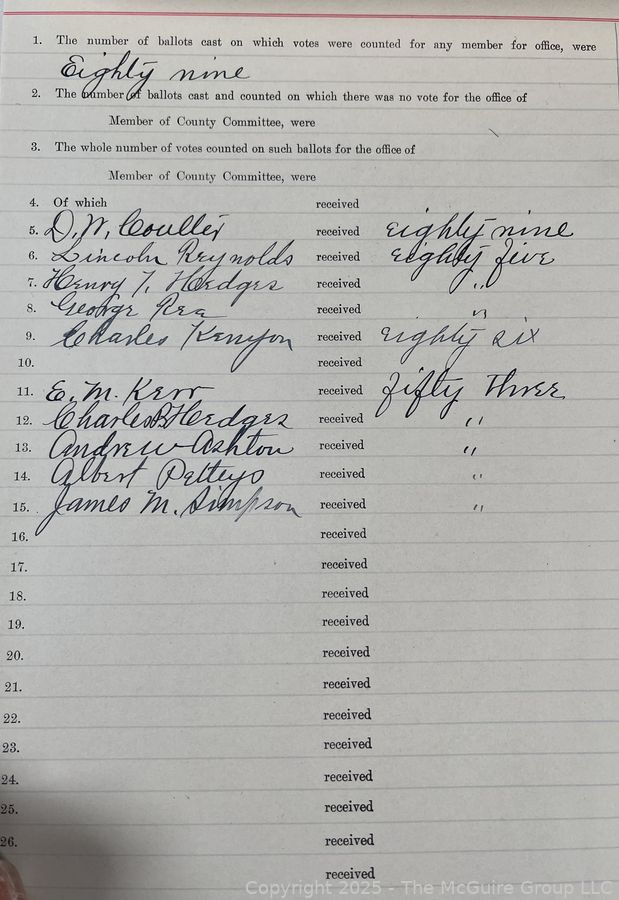 1. The number of ballots cast on which votes were counted for any member for office, were
Eighty nine
2. The number of ballots cast and counted on which there was no vote for the office of
Member of County Committee, were
3. The whole number of votes counted on such ballots for the office of
Member of County Committee, were
4. Of which received
5. D. W. Coulter received eighty nine
6. Lincoln Reynolds received eighty five
7. Henry T. Hedges received "
8. George Rea received "
9. Charles Kenyon received eighty six
10. received
11. E. M. Kerr received fifty three
12. Charles B Hedges received "
13. Andrew Ashton received "
14. Albert Petteys received "
15. James M. Simpson received "
16. received
17. received
18. received
19. received
20. received
21. received
22. received
23. received
24. received
25. received
26. received
received
Copyright 2025 - The McGuire Group LLC